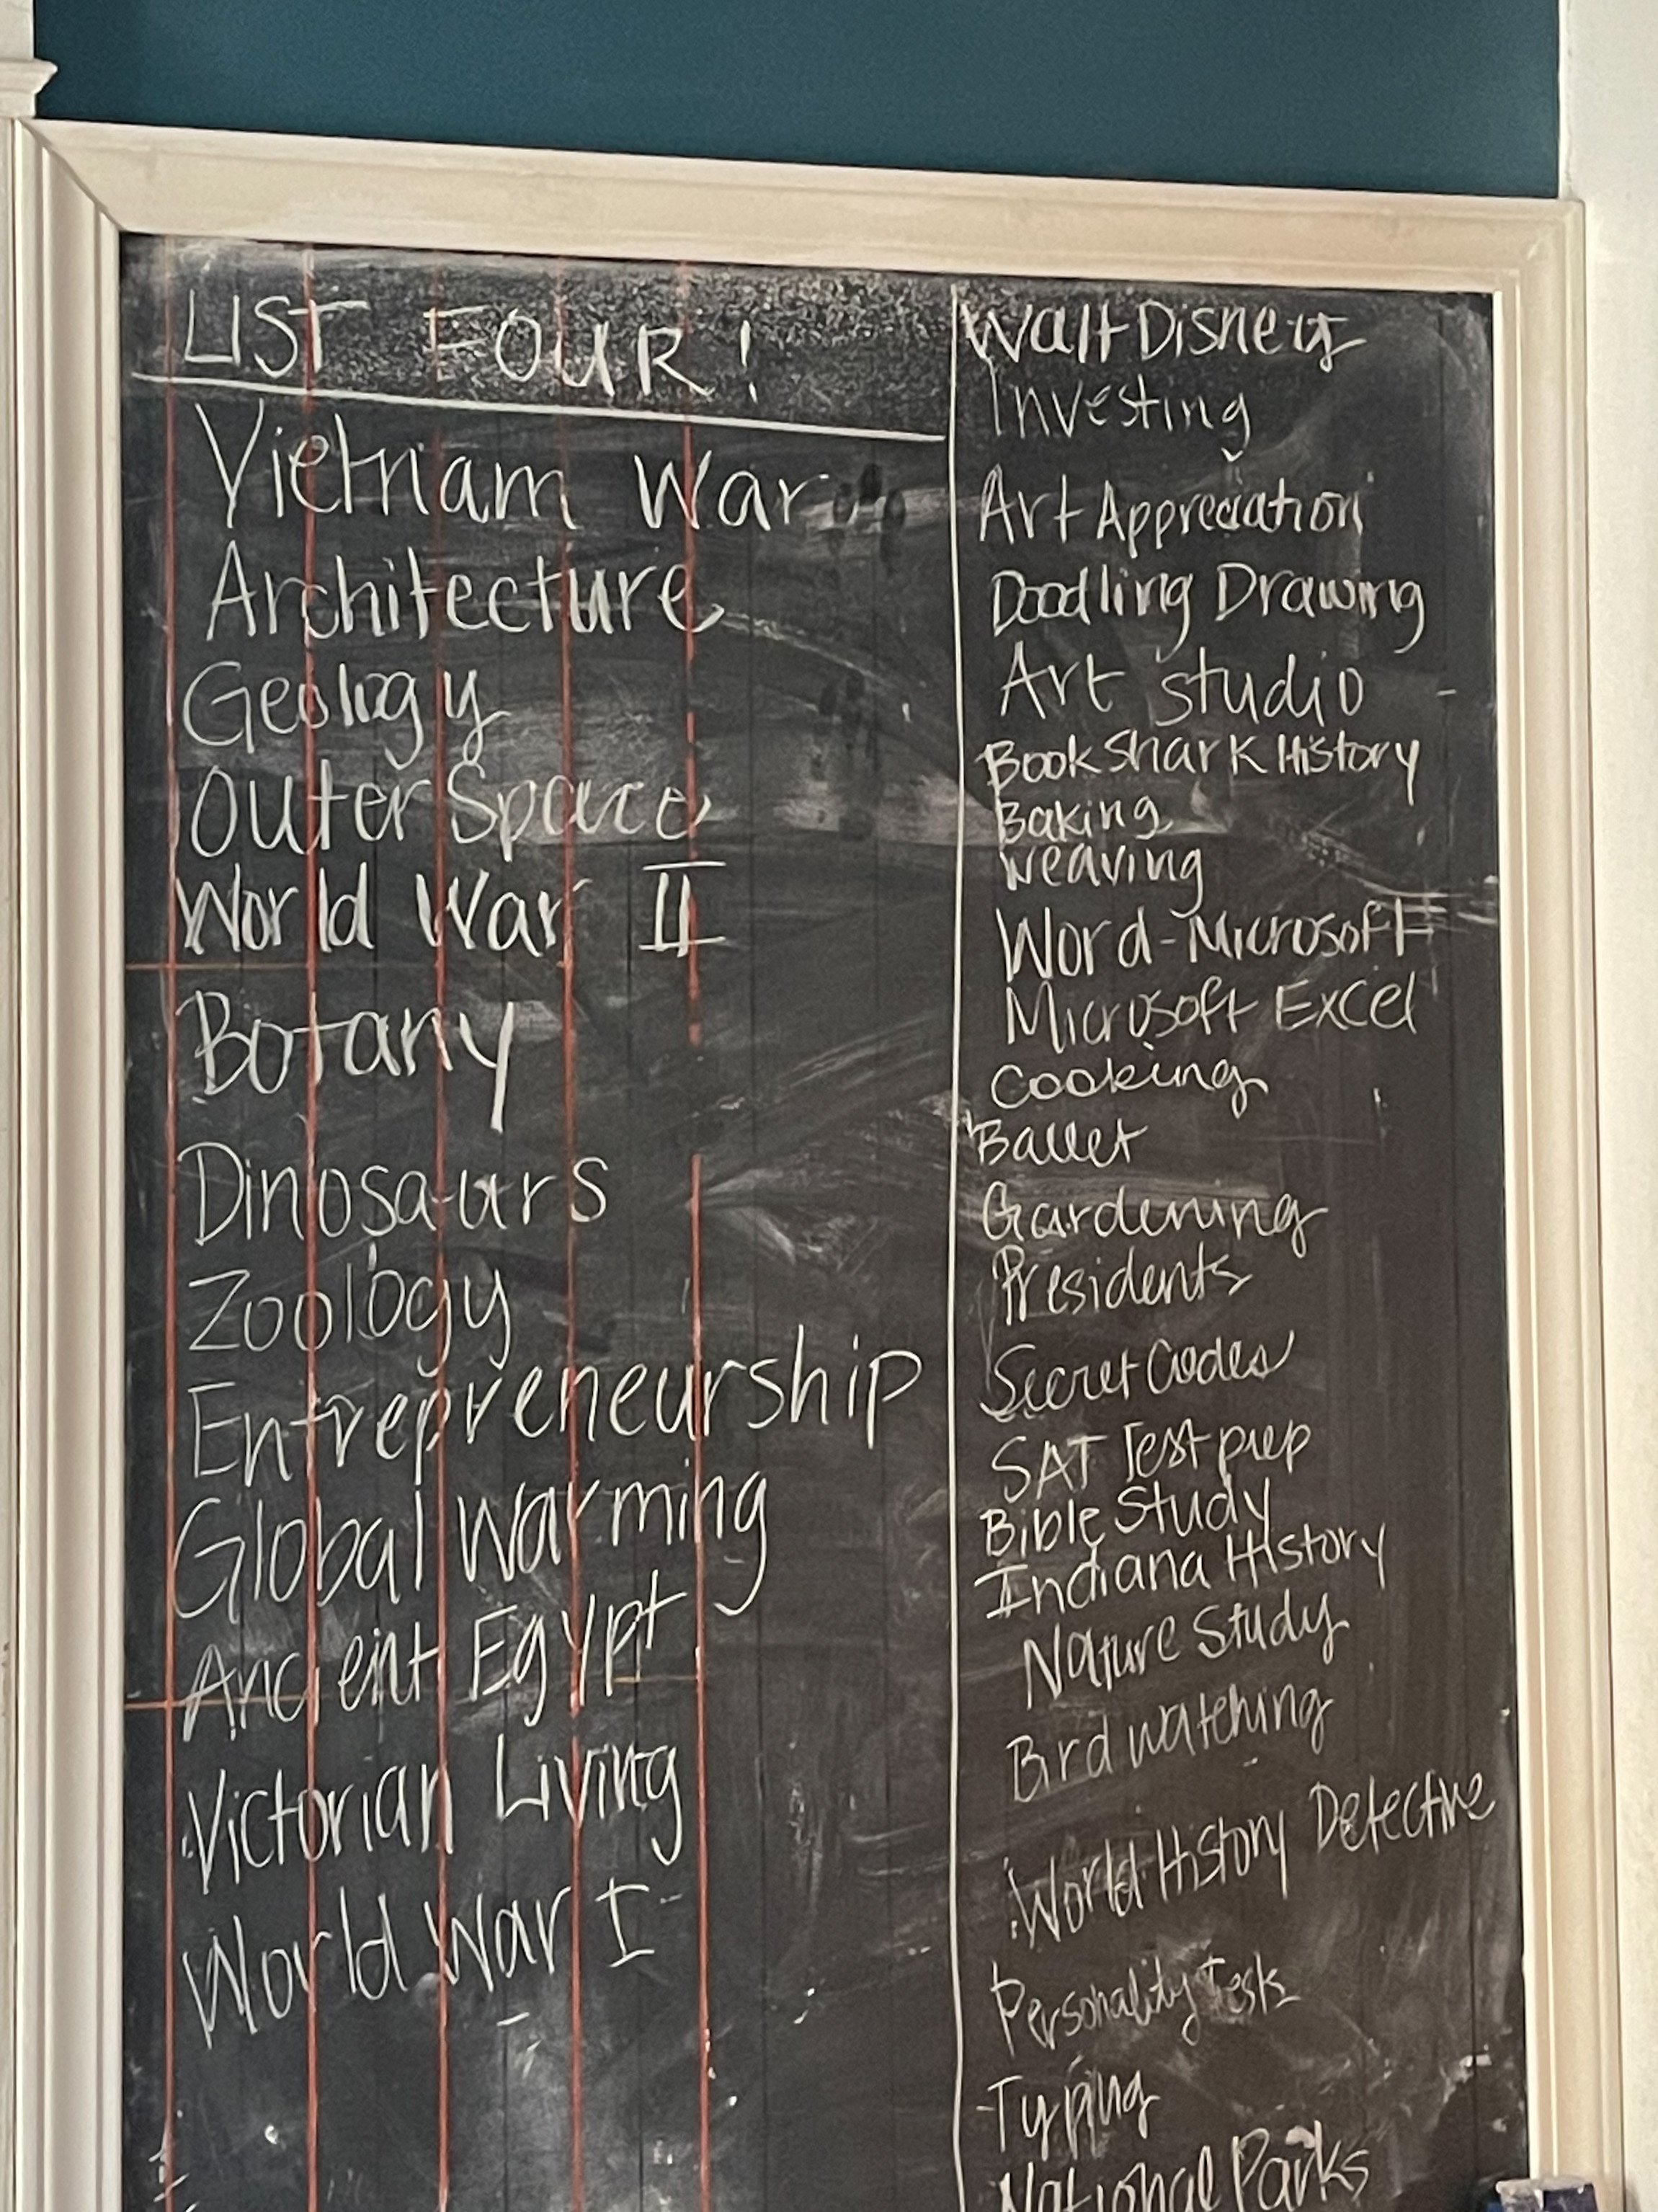 LIST FOUR!
Vietnam War
Architecture
Geology
Outer Space
World War II
Botany
Dinosaurs
Zoology
Entrepreneurship
Global Warming
Ancient Egypt
Victorian Living
World War I
Walt Disney
Investing
Art Appreciation
Doodling Drawing
Art studio
Book Shark History
Baking
Weaving
Word-Microsoft
Microsoft Excel
Cooking
Ballet
Gardening
Presidents
Secret Codes
SAT Test prep
Bible Study
Indiana History
Nature Study
Bird watching
World History Detective
Personality Tests
Typing
National Parks